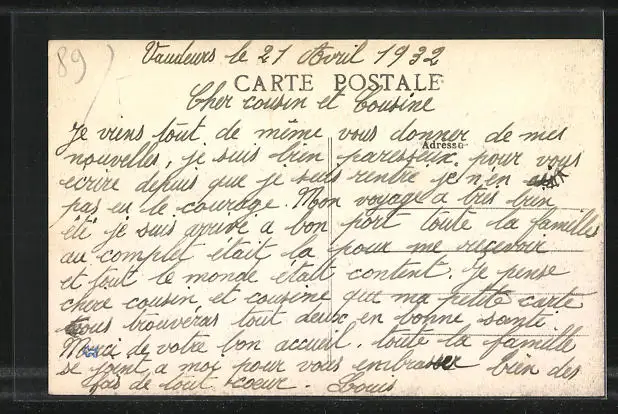 89
Vaudeurs le 21 Avril 1932
CARTE POSTALE
Cher cousin et Cousine
Je viens tout de même vous donner de mes
Adresse
nouvelles, je suis bien paresseux pour vous
écrire depuis que je suis rentré je n'en
pas eu le courage. Mon voyage a très bien
été je suis arrivé a bon port toute la familles
au complet était la pour me reçevoir
et tout le monde était content. Je pense
chere cousin et cousine que ma petite carte
vous trouveras tout deux en bonne santi
Merci de votre bon accueil. toute la famille
se joint a moi pour vous embrasser bien des
fois de tout coeur. Louis